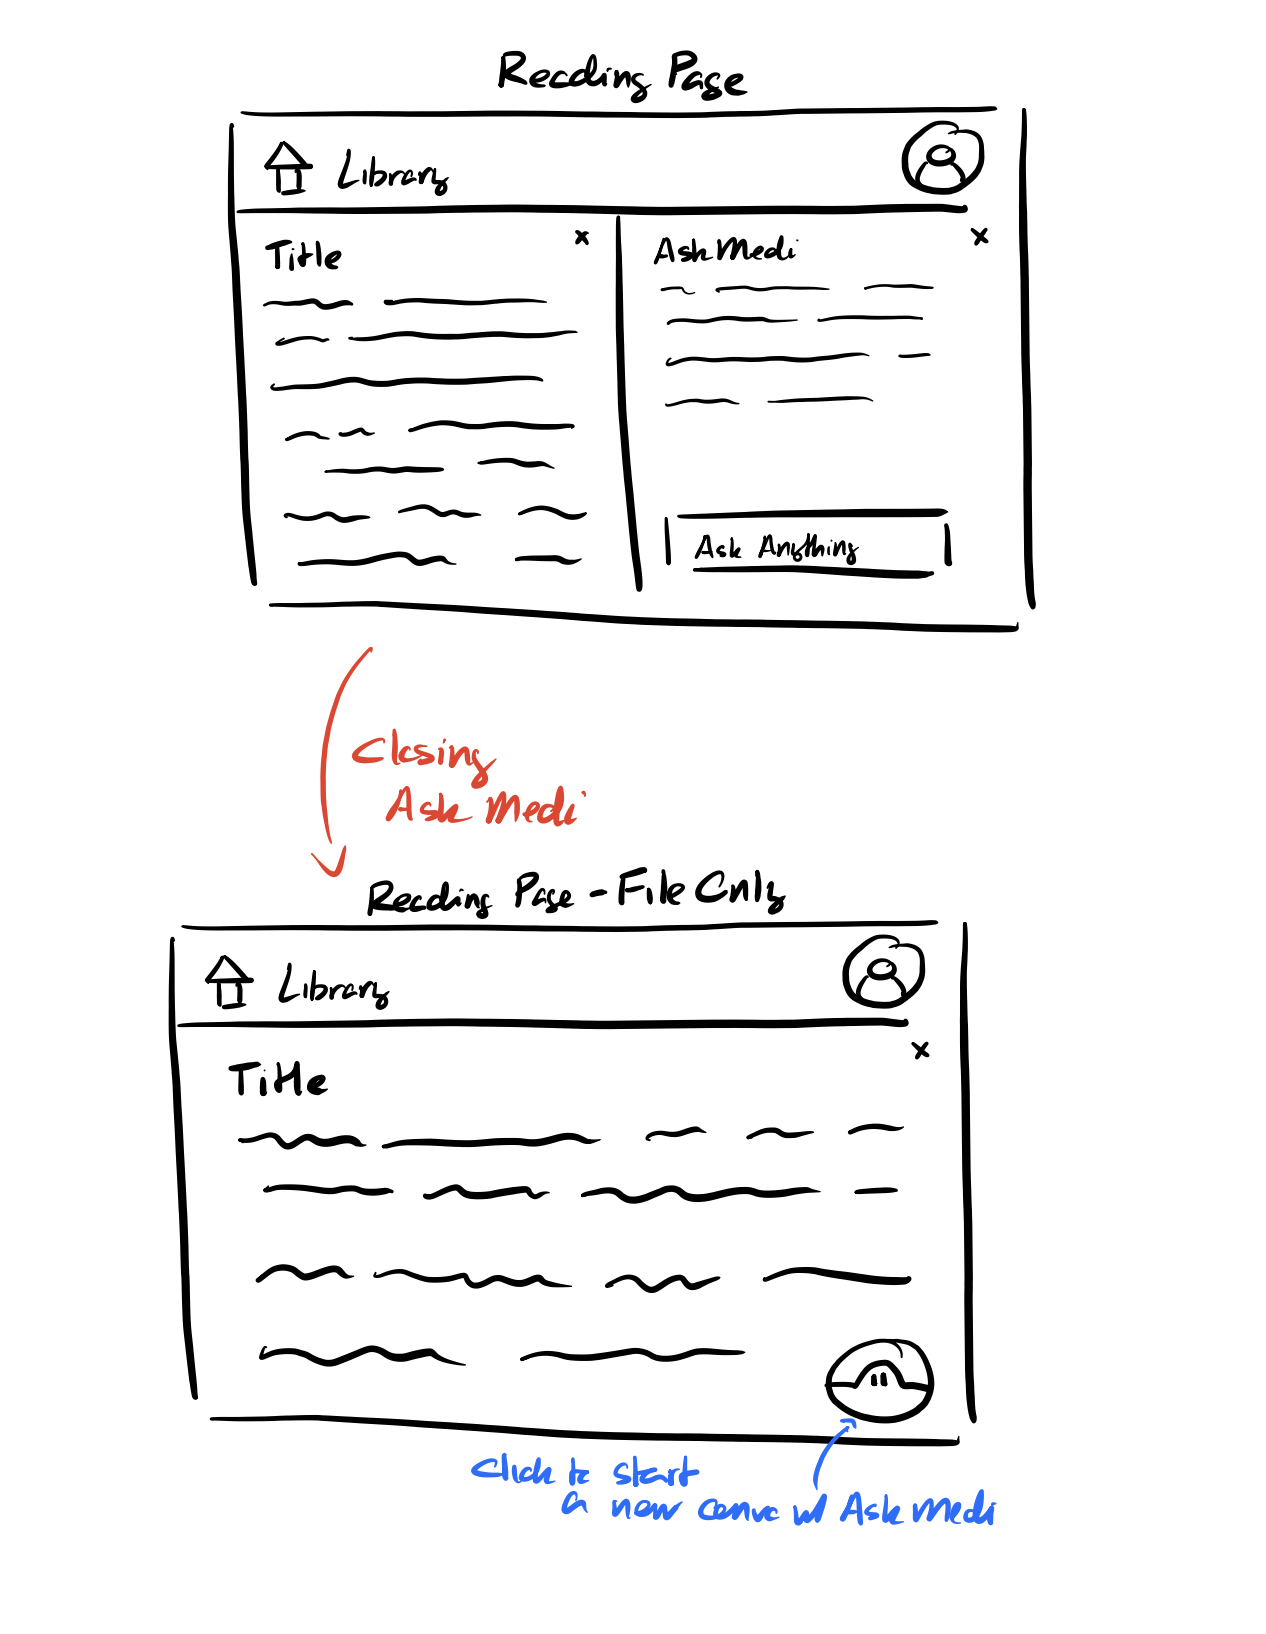 Reading Page
Library
Title x
Ask Medi x
Ask Anything
Closing
Ask Medi
Reading Page - File Only
Library
x
Title
Click to start
a new convo w/ Ask Medi